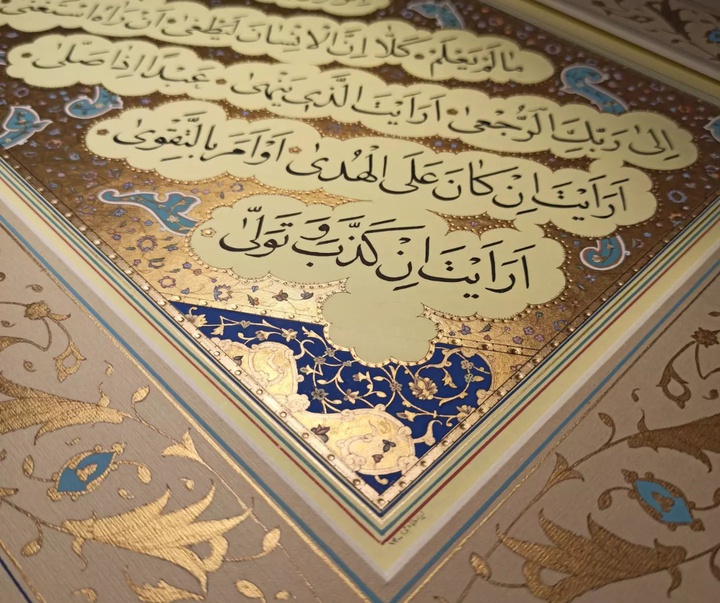 ما لم يعلم كلا ان الانسان ليطغى ان راه استغنى
الى ربك الرجعى ارايت الذي ينهى عبدا اذا صلى
ارايت ان كان على الهدى او امر بالتقوى
ارايت ان كذب و تولى